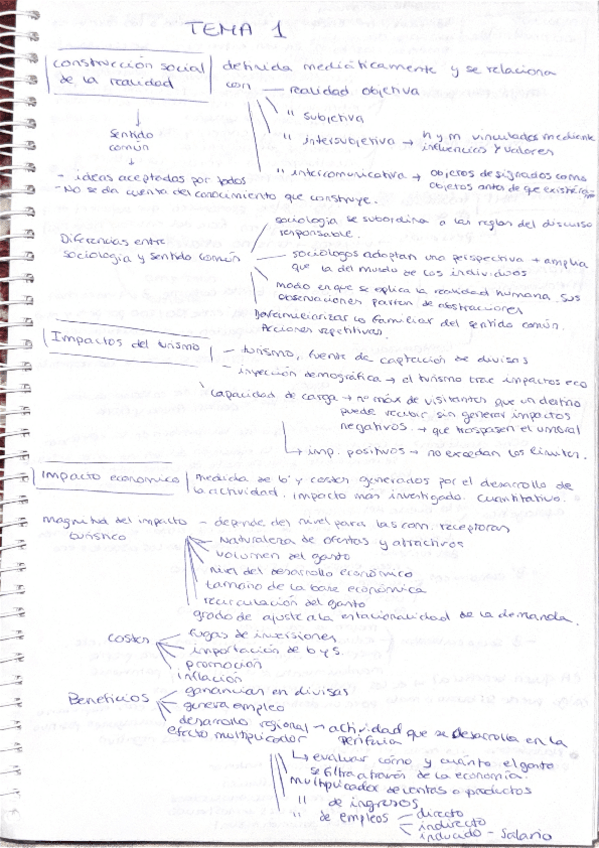 TEMA 1
construcción social de la realidad
definida mediáticamente y se relaciona
con — realidad objetiva
" subjetiva
" intersubjetiva → h y m vinculados mediante
influencias y valores
" intercomunicativa → objetos designados como
objetos antes de que existieran
↓
sentido
común
↓
- ideas aceptadas por todos
- No se da cuenta del conocimiento que construye.
Diferencias entre
sociología y sentido común
sociología se subordina a las reglas del discurso
responsable.
sociólogos adoptan una perspectiva + amplia
que la del mundo de los individuos
modo en que se explica la realidad humana, sus
observaciones parten de abstracciones
Desfamiliarizar lo familiar del sentido común.
Acciones repetitivas
Impactos del turismo
- turismo, fuente de captación de divisas
- inyección demográfica → el turismo trae impactos eco
capacidad de carga → nº máx de visitantes que un destino
puede recibir sin generar impactos
negativos. → que traspasen el umbral
↳ imp. positivos → no excedan los límites.
Impacto económico
medida de b° y costes generados por el desarrollo de
la actividad. impacto más investigado. cuantitativo.
magnitud del impacto
turístico
- depende del nivel para las com. receptoras
naturaleza de ofertas y atractivos
volumen del gasto
nivel del desarrollo económico
tamaño de la base económica
recirculación del gasto
grado de ajuste a la estacionalidad de la demanda.
costes
fugas de inversiones
importación de b y s.
promoción
inflación
Beneficios
ganancias en divisas
genera empleo
desarrollo regional → actividad que se desarrolla en la
periferia
efecto multiplicador
↳ evaluar cómo y cuánto el gasto
se filtra a través de la economía.
multiplicador de ventas o productos
" de ingresos
" de empleos
directo
indirecto
inducido - salario